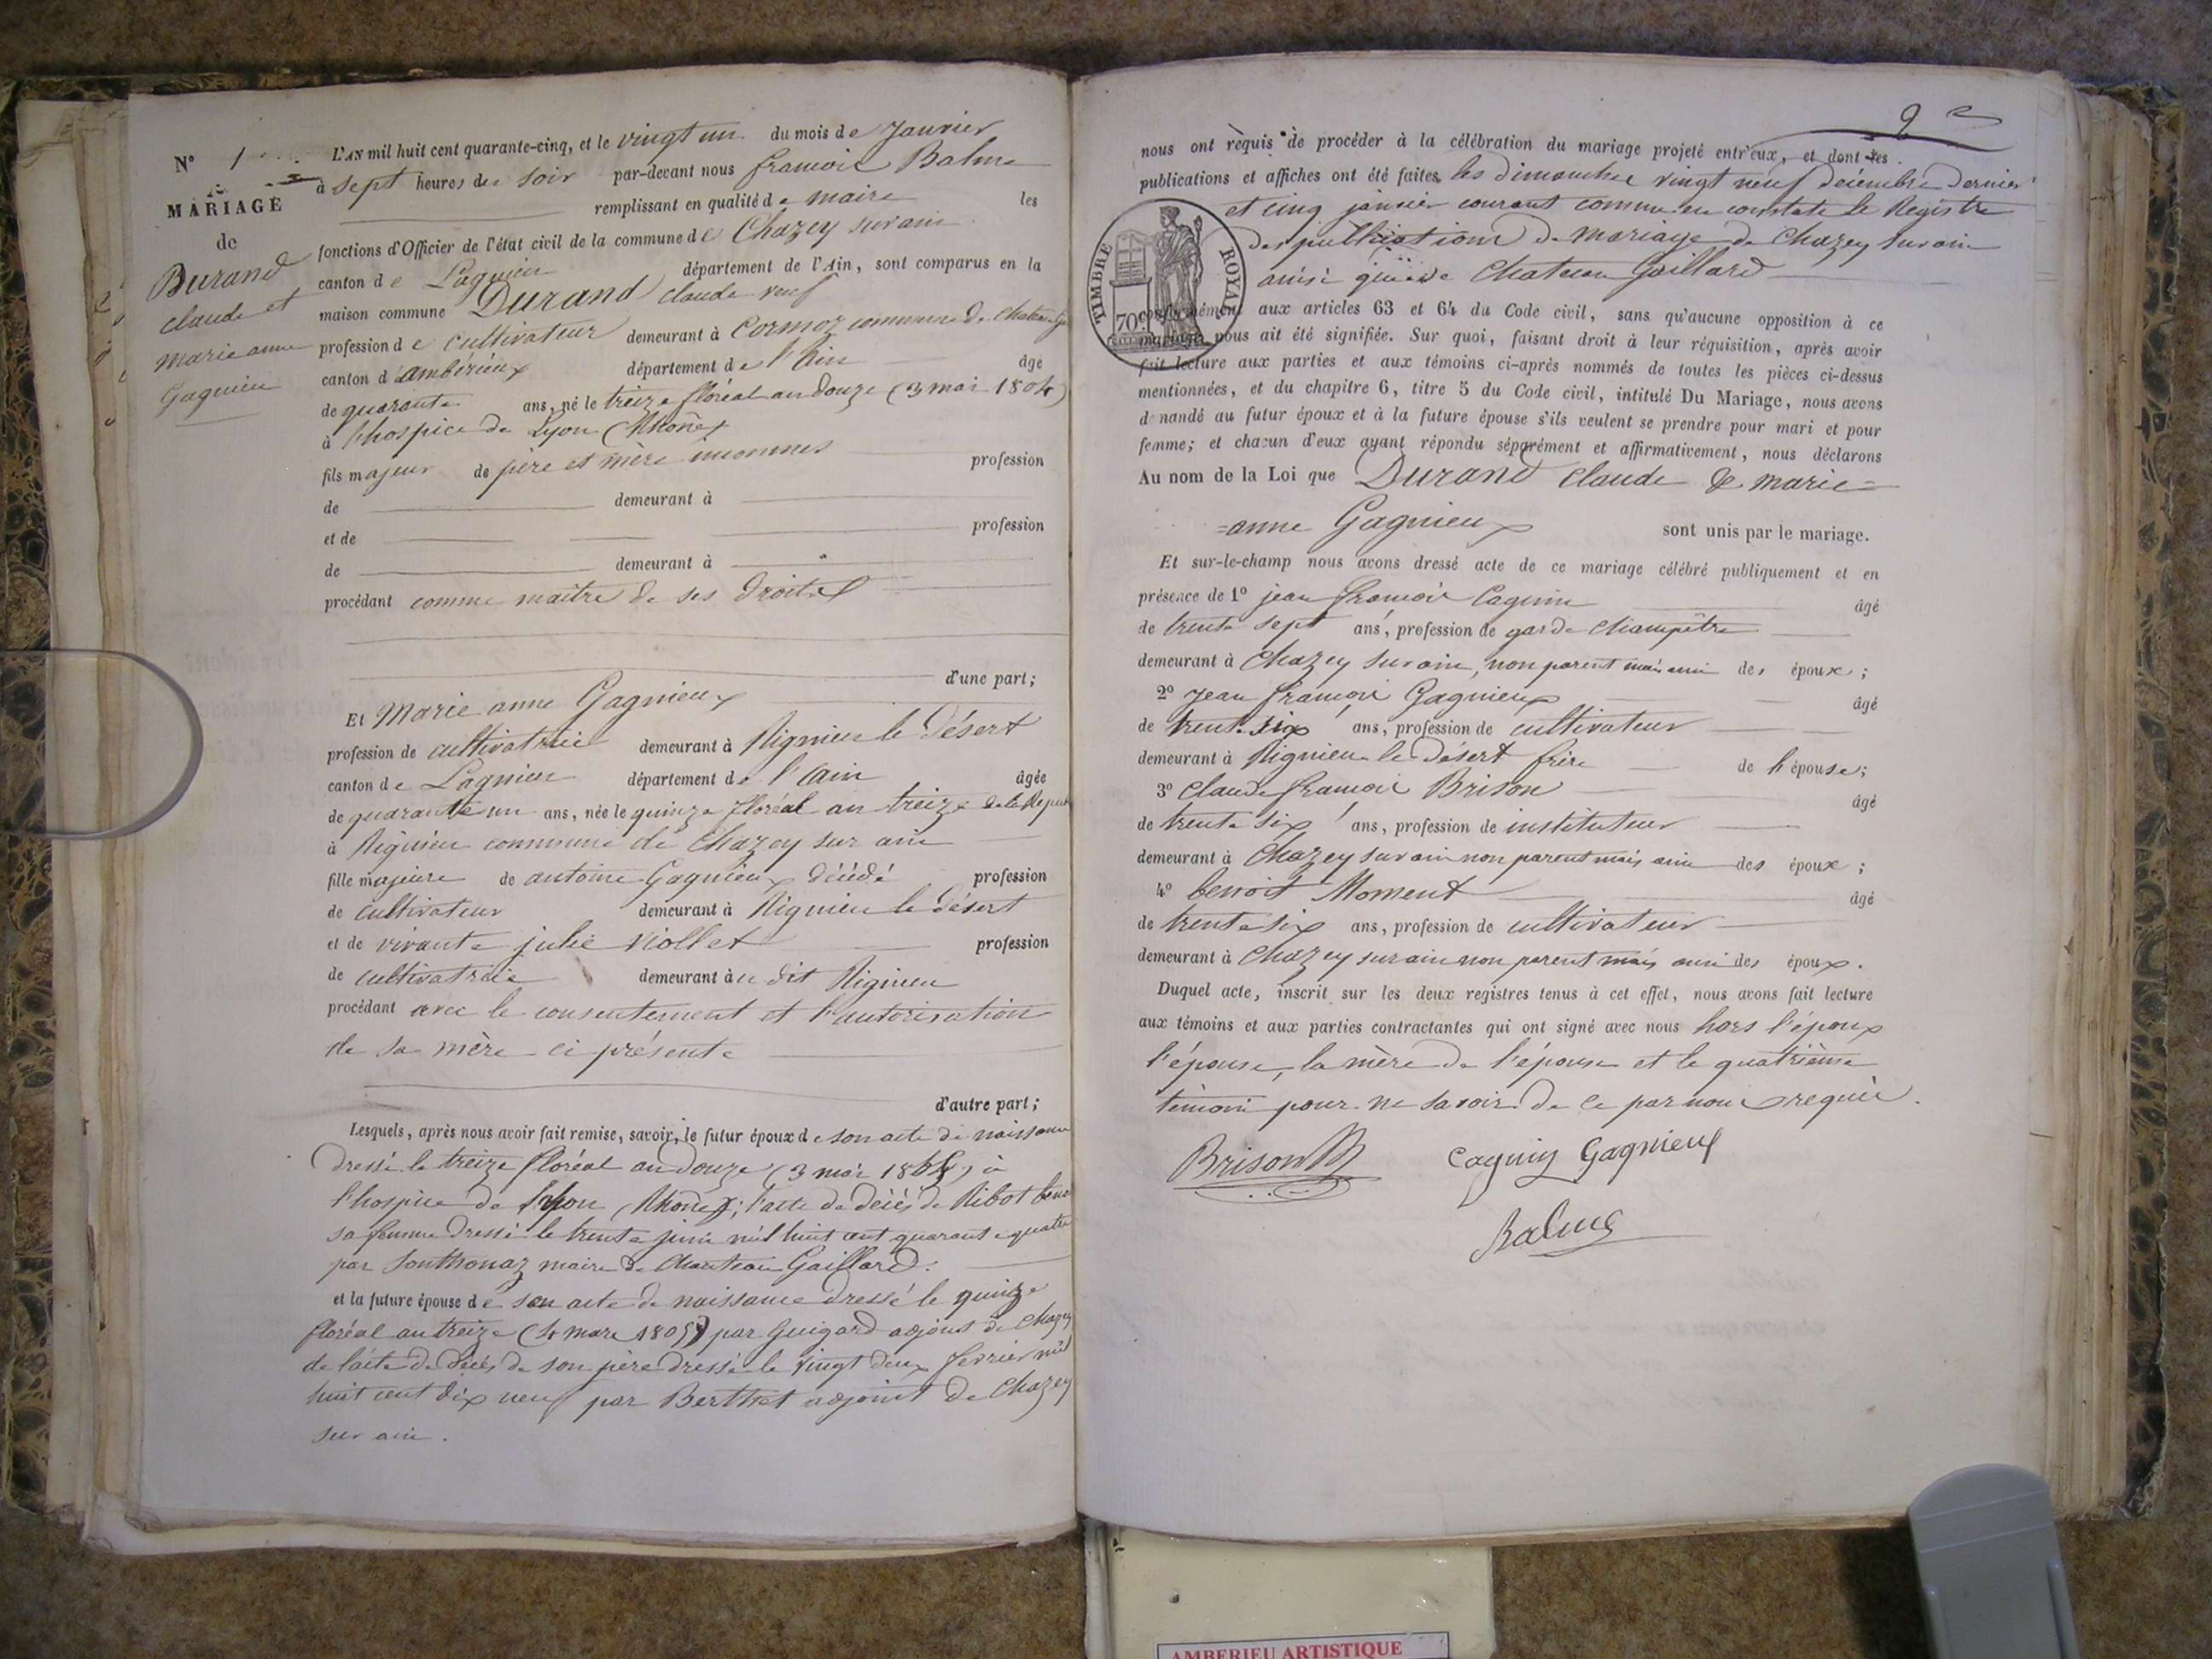 N° 1
MARIAGE
de
Durand
claude et
marie anne
Gagnieu
L'AN mil huit cent quarante-cinq, et le vingt un du mois de Janvier
à sept heures du soir par-devant nous francois Balme
remplissant en qualité de maire les
fonctions d'Officier de l'état civil de la commune de Chazey sur ain
canton de Lagnieu département de l'Ain, sont comparus en la
maison commune Durand claude veuf
profession de cultivateur demeurant à Cormoz commune de
canton d'ambérieux département de l'Ain âgé
de quarante ans, né le treize floréal an douze (3 mai 1804)
à l'hospice de Lyon (Rhône)
fils majeur de père et mère inconnus profession
de demeurant à
et de profession
de demeurant à
procédant comme maître de ses droits
d'une part;
Et Marie anne Gagnieux
profession de cultivatrice demeurant à Rignieu le Désert
canton de Lagnieu département de l'ain âgée
de quarante un ans, née le quinze floréal an treize de la Repub
à Rignieu commune de Chazey sur ain
fille majeure de antoine Gagnieux décédé profession
de cultivateur demeurant à Rignieu le désert
et de vivante julie Viollet profession
de cultivatrice demeurant à u dit Rignieu
procédant avec le consentement et l'autorisation
de sa mère ci présente
d'autre part;
Lesquels, après nous avoir fait remise, savoir, le futur époux de son acte de naissance
dressé le treize floréal an douze (3 mai 1804) à
l'hospice de Lyon (Rhône); l'acte de décès de Ribot
sa femme dressé le trente juin mil huit cent quarante quatre
par Sonthonaz maire de Chateau Gaillard.
et la future épouse de son acte de naissance dressé le quinze
floréal an treize (4 mars 1805) par Guigard adjoint de Chazey
de l'acte de décès de son père dressé le vingt deux fevrier mil
huit cent dix neuf par Berthet adjoint de Chazey
sur ain.
2
nous ont requis de procéder à la célébration du mariage projeté entr'eux, et dont les
publications et affiches ont été faites les dimanches vingt neuf décembre dernier
et cinq janvier courant comme en constate le Registre
des publications de mariage de Chazey sur ain
ainsi que de Chateau Gaillard
TIMBRE ROYAL
70c
conformément aux articles 63 et 64 du Code civil, sans qu'aucune opposition à ce
mariage nous ait été signifiée. Sur quoi, faisant droit à leur réquisition, après avoir
fait lecture aux parties et aux témoins ci-après nommés de toutes les pièces ci-dessus
mentionnées, et du chapitre 6, titre 5 du Code civil, intitulé Du Mariage, nous avons
demandé au futur époux et à la future épouse s'ils veulent se prendre pour mari et pour
femme; et chacun d'eux ayant répondu séparément et affirmativement, nous déclarons
Au nom de la Loi que Durand claude & marie=
=anne Gagnieux sont unis par le mariage.
Et sur-le-champ nous avons dressé acte de ce mariage célébré publiquement et en
présence de 1° jean francois Cagnin âgé
de trente sept ans, profession de garde champêtre
demeurant à Chazey sur ain, non parent mais ami des époux;
2° jean francois Gagnieux âgé
de trente six ans, profession de cultivateur
demeurant à Rignieu le désert frère de l'épouse;
3° Claude francois Brison âgé
de trente six ans, profession de instituteur
demeurant à Chazey sur ain non parent mais ami des époux;
4° benoit Moment âgé
de trente six ans, profession de cultivateur
demeurant à Chazey sur ain non parent mais ami des époux.
Duquel acte, inscrit sur les deux registres tenus à cet effet, nous avons fait lecture
aux témoins et aux parties contractantes qui ont signé avec nous hors l'époux
l'épouse, la mère de l'épouse et le quatrième
témoin pour ne savoir de ce par nous requis.
Brison Cagnin Gagnieux
Balme
AMBERIEU ARTISTIQUE